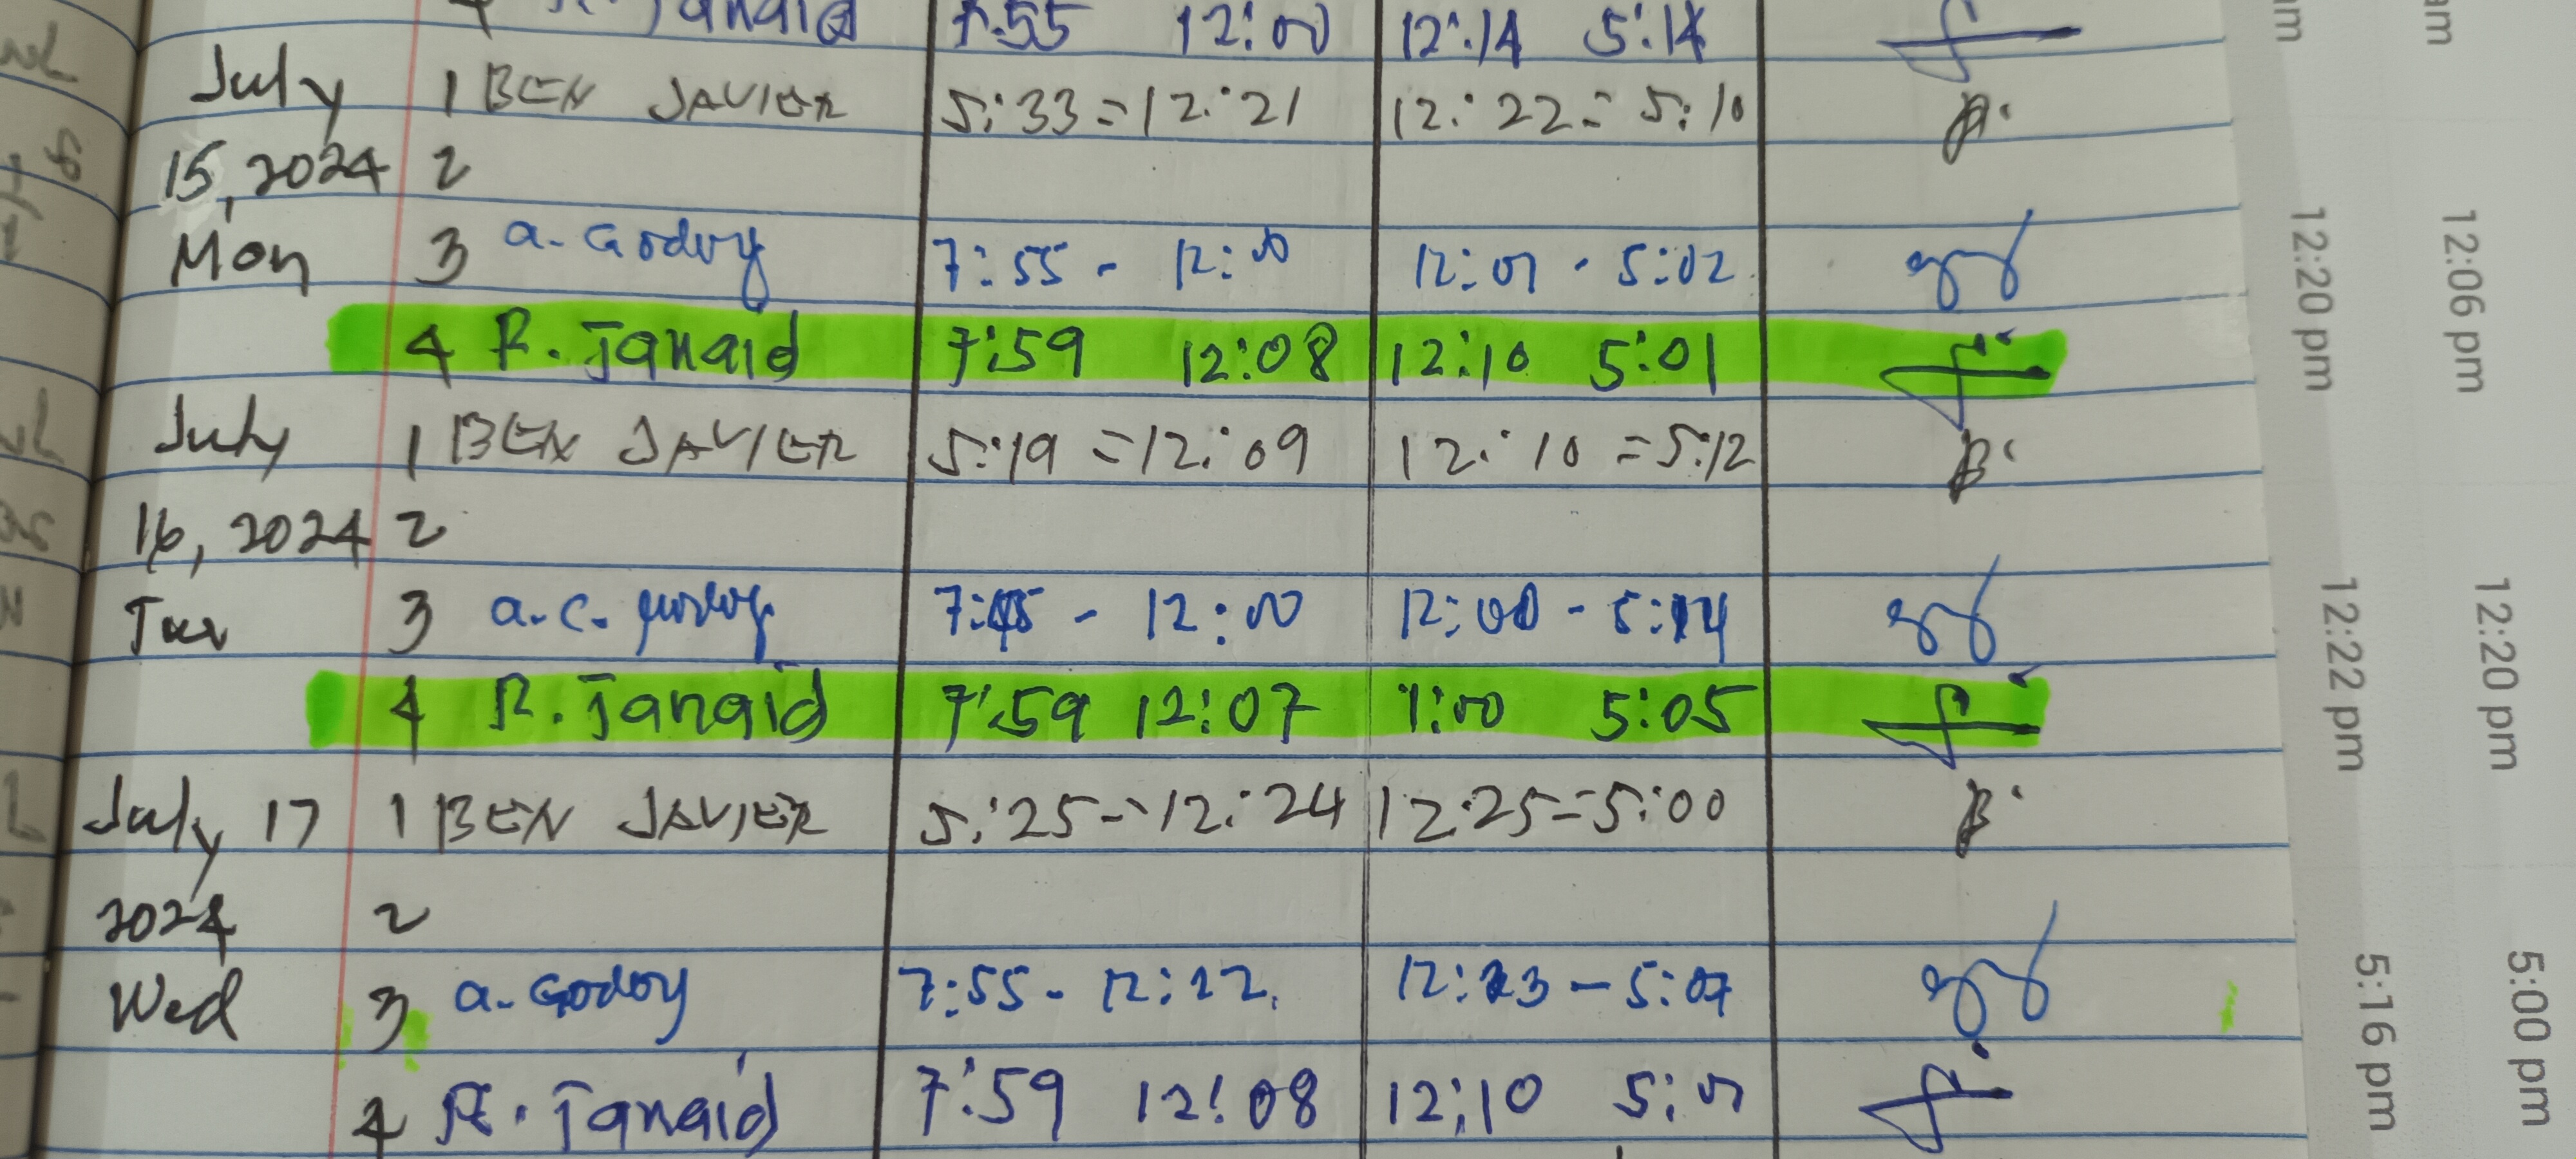 4 R. Tanaid 7:55 12:00 12:14 5:14
July 1 BEN JAVIER 5:33=12:21 12:22=5:10
15, 2024 2
Mon 3 a. Godoy 7:55 - 12:00 12:01 - 5:02
4 R. Tanaid 7:59 12:08 12:10 5:01
July 1 BEN JAVIER 5:19=12:09 12:10=5:12
16, 2024 2
Tue 3 a.c. 7:45 - 12:00 12:00 - 5:14
4 R. Tanaid 7:59 12:07 1:00 5:05
July 17 1 BEN JAVIER 5:25=12:24 12:25=5:00
2024 2
Wed 3 a. Godoy 7:55 - 12:22 12:23 - 5:07
4 R. Tanaid 7:59 12:08 12:10 5:01
am 12:06 pm 12:20 pm 5:00 pm
am 12:20 pm 12:22 pm 5:16 pm